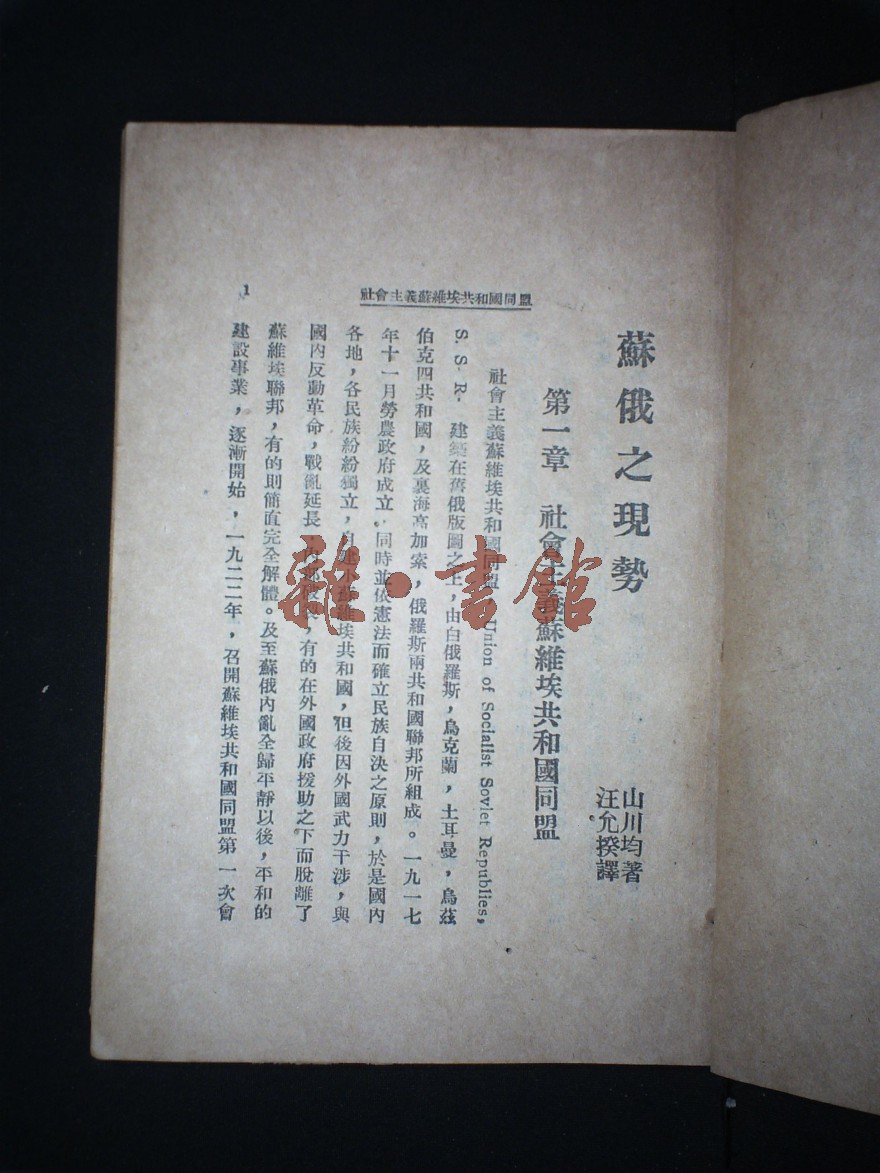 蘇俄之現勢
山川均著
汪允揆譯
第一章 社會主義蘇維埃共和國同盟
社會主義蘇維埃共和國同盟 Union of Socialist Soviet Republies,
S. S. R. 建築在舊俄版圖之上，由白俄羅斯，烏克蘭，土耳曼，烏茲
伯克四共和國，及裏海高加索，俄羅斯兩共和國聯邦所組成。一九一七
年十一月勞農政府成立，同時並依憲法而確立民族自決之原則，於是國內
各地，各民族紛紛獨立，蘇維埃共和國，但後因外國武力干涉，與
國內反動革命，戰亂延長，有的在外國政府援助之下而脫離了
蘇維埃聯邦，有的則簡直完全解體。及至蘇俄內亂全歸平靜以後，平和的
建設事業，逐漸開始，一九二二年，召開蘇維埃共和國同盟第一次會
社會主義蘇維埃共和國同盟
1
雜·書館